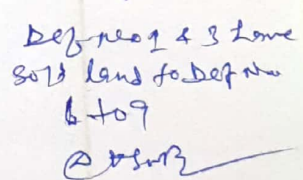 Def no 1 & 3 have
sold land to Def no
6 to 9